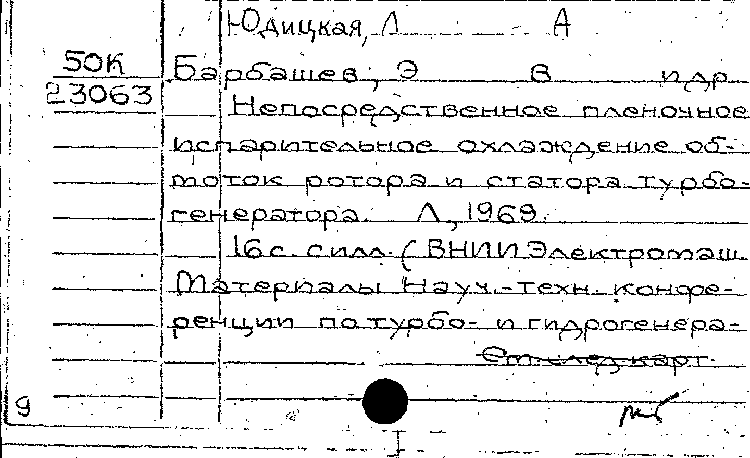 Юдицкая, Л А
50К
Барбашев, Э В и др
23063
Непосредственное пленочное
испарительное охлаждение об-
моток ротора и статора турбо-
генератора. Л., 1969.
16 с. с илл. (ВНИИЭлектромаш.
Материалы Науч.-техн. конфе-
ренции по турбо- и гидрогенера-
См. след. карт.
9